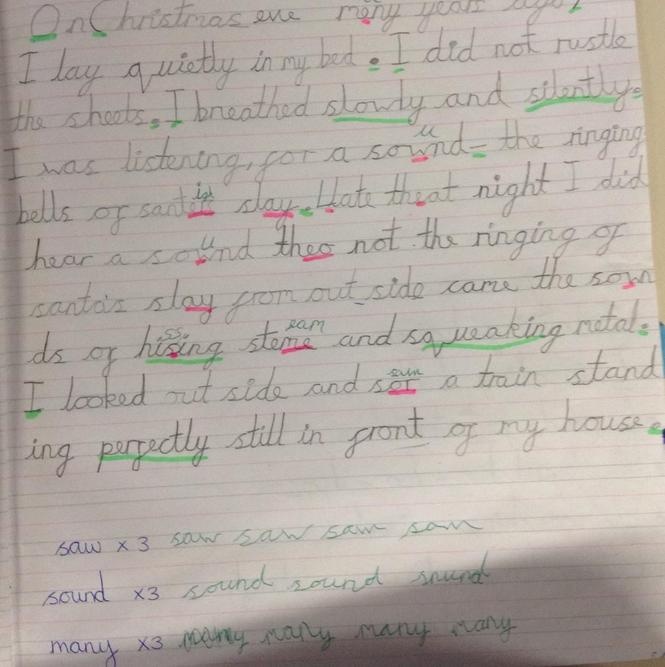 On Christmas eve mony years ago,
I lay quietly in my bed. I did not rustle
the sheets. I breathed slowly and silently.
u
I was listening, for a sownd - the ringing
bells of slay. Late theat night I did
u
hear a sownd theo not the ringing of
santa's slay from out side came the sown
ss eam
ds of hising steme and squeaking metal.
I looked out side and sor a train stand
ing perfectly still in front of my house.
saw x 3 saw saw saw saw
sound x3 sound sound sound
many x3 many many many many